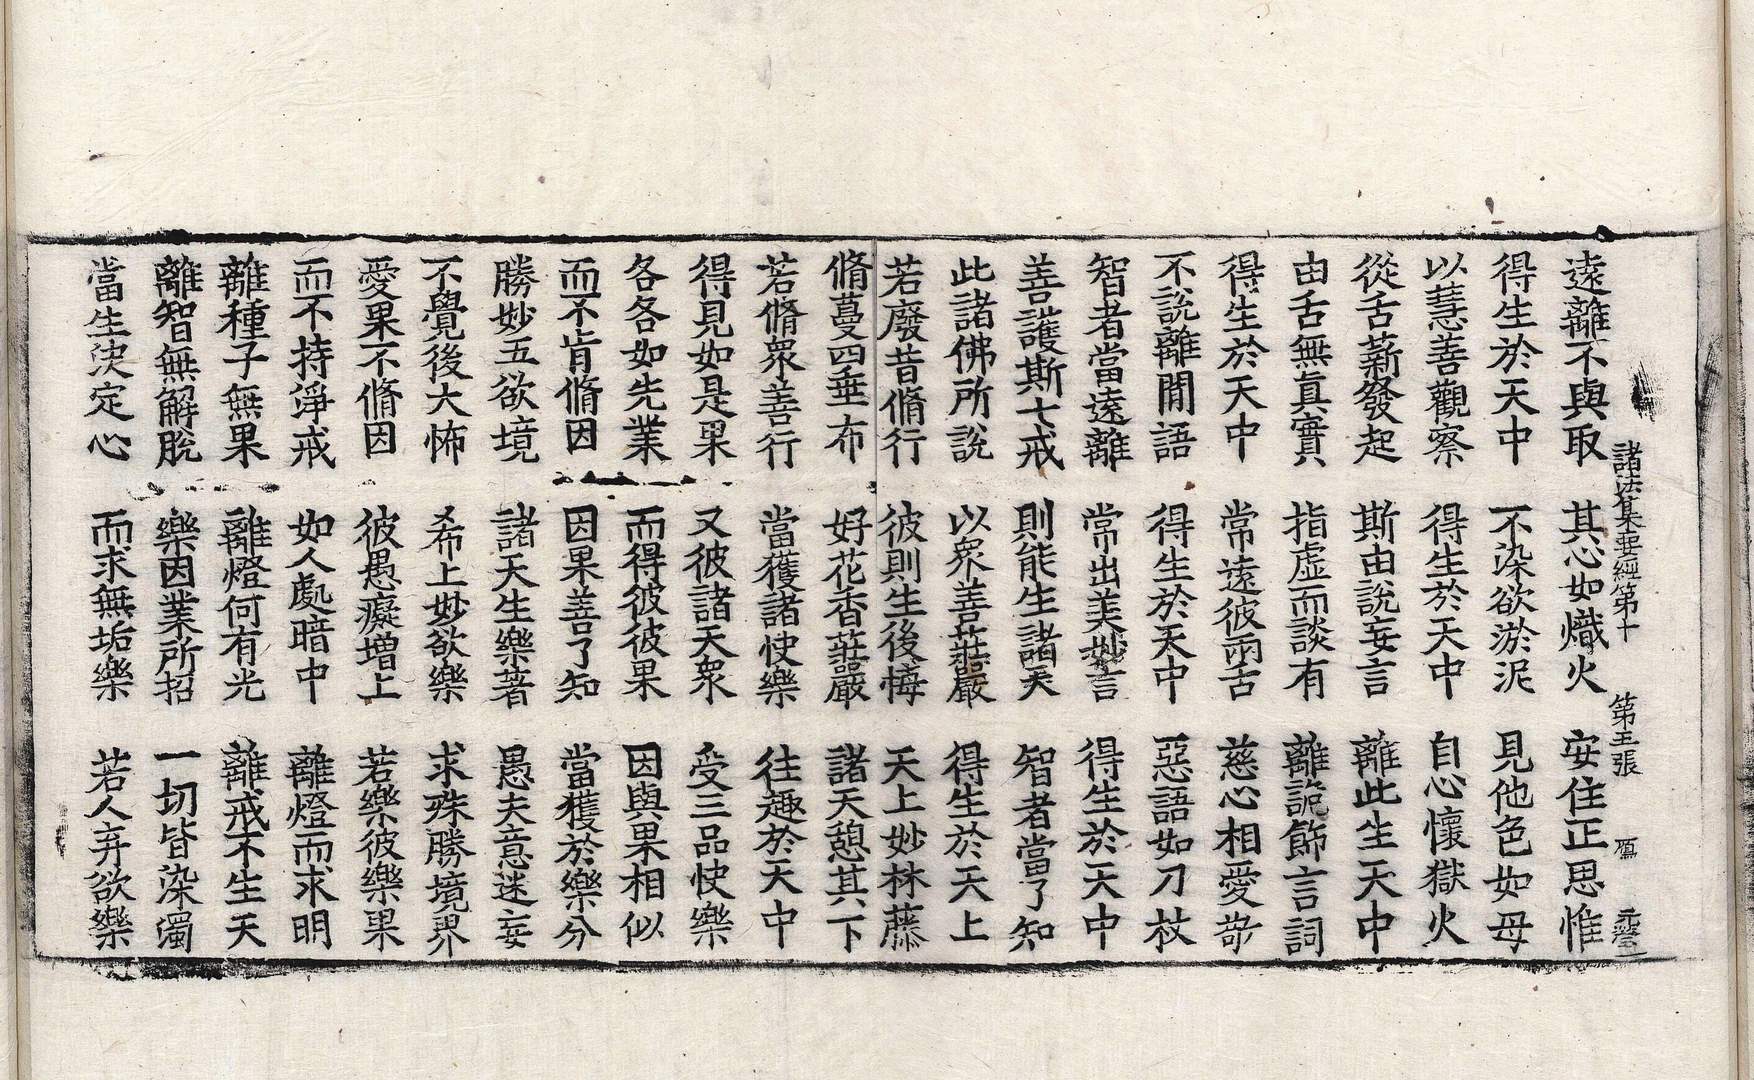 諸法集要經第十　第五張　㢘
遠離不與取　其心如熾火　安住正思惟
得生於天中　不染欲淤泥　見他色如母
以慧善觀察　得生於天中　自心懷獄火
從舌薪發起　斯由說妄言　離此生天中
由舌無真實　指虛而談有　離諂餙言詞
得生於天中　常遠彼兩舌　慈心相愛敬
不說離間語　得生於天中　惡語如刀杖
智者當遠離　常出美妙言　得生於天中
善護斯七戒　則能生諸天　智者當了知
此諸佛所說　以衆善莊嚴　得生於天上
若廢昔脩行　彼則生後悔　天上妙林藤
脩蔓四垂布　好花香莊嚴　諸天憩其下
若脩衆善行　當獲諸快樂　往趣於天中
得見如是果　又彼諸天衆　受三品快樂
各各如先業　而得彼彼果　因與果相似
而不肯脩因　因果善了知　當獲於樂分
勝妙五欲境　諸天生樂著　愚夫意迷妄
不覺後大怖　希上妙欲樂　求殊勝境界
愛果不脩因　彼愚癡增上　若樂彼樂果
而不持淨戒　如人處暗中　離燈而求明
離種子無果　離燈何有光　離戒不生天
離智無解脫　樂因業所招　一切皆染濁
當生決定心　而求無垢樂　若人弃欲樂